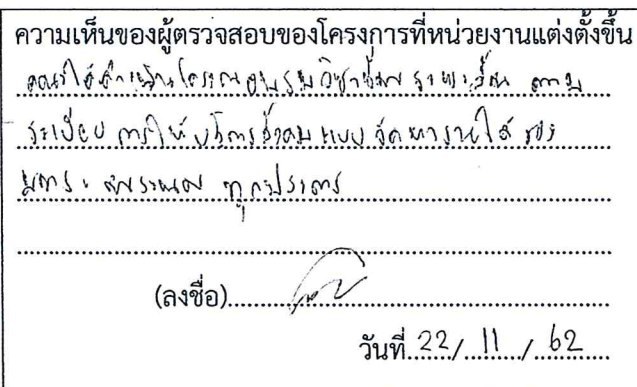 ความเห็นของผู้ตรวจสอบของโครงการที่หน่วยงานแต่งตั้งขึ้น
คณะได้ดำเนินโครงการอบรมวิชาชีพระยะสั้น ตาม
ระเบียบ การให้บริการสังคมแบบจัดหารายได้ ของ
ทุกประการ
(ลงชื่อ)
วันที่ 22 / 11 / 62